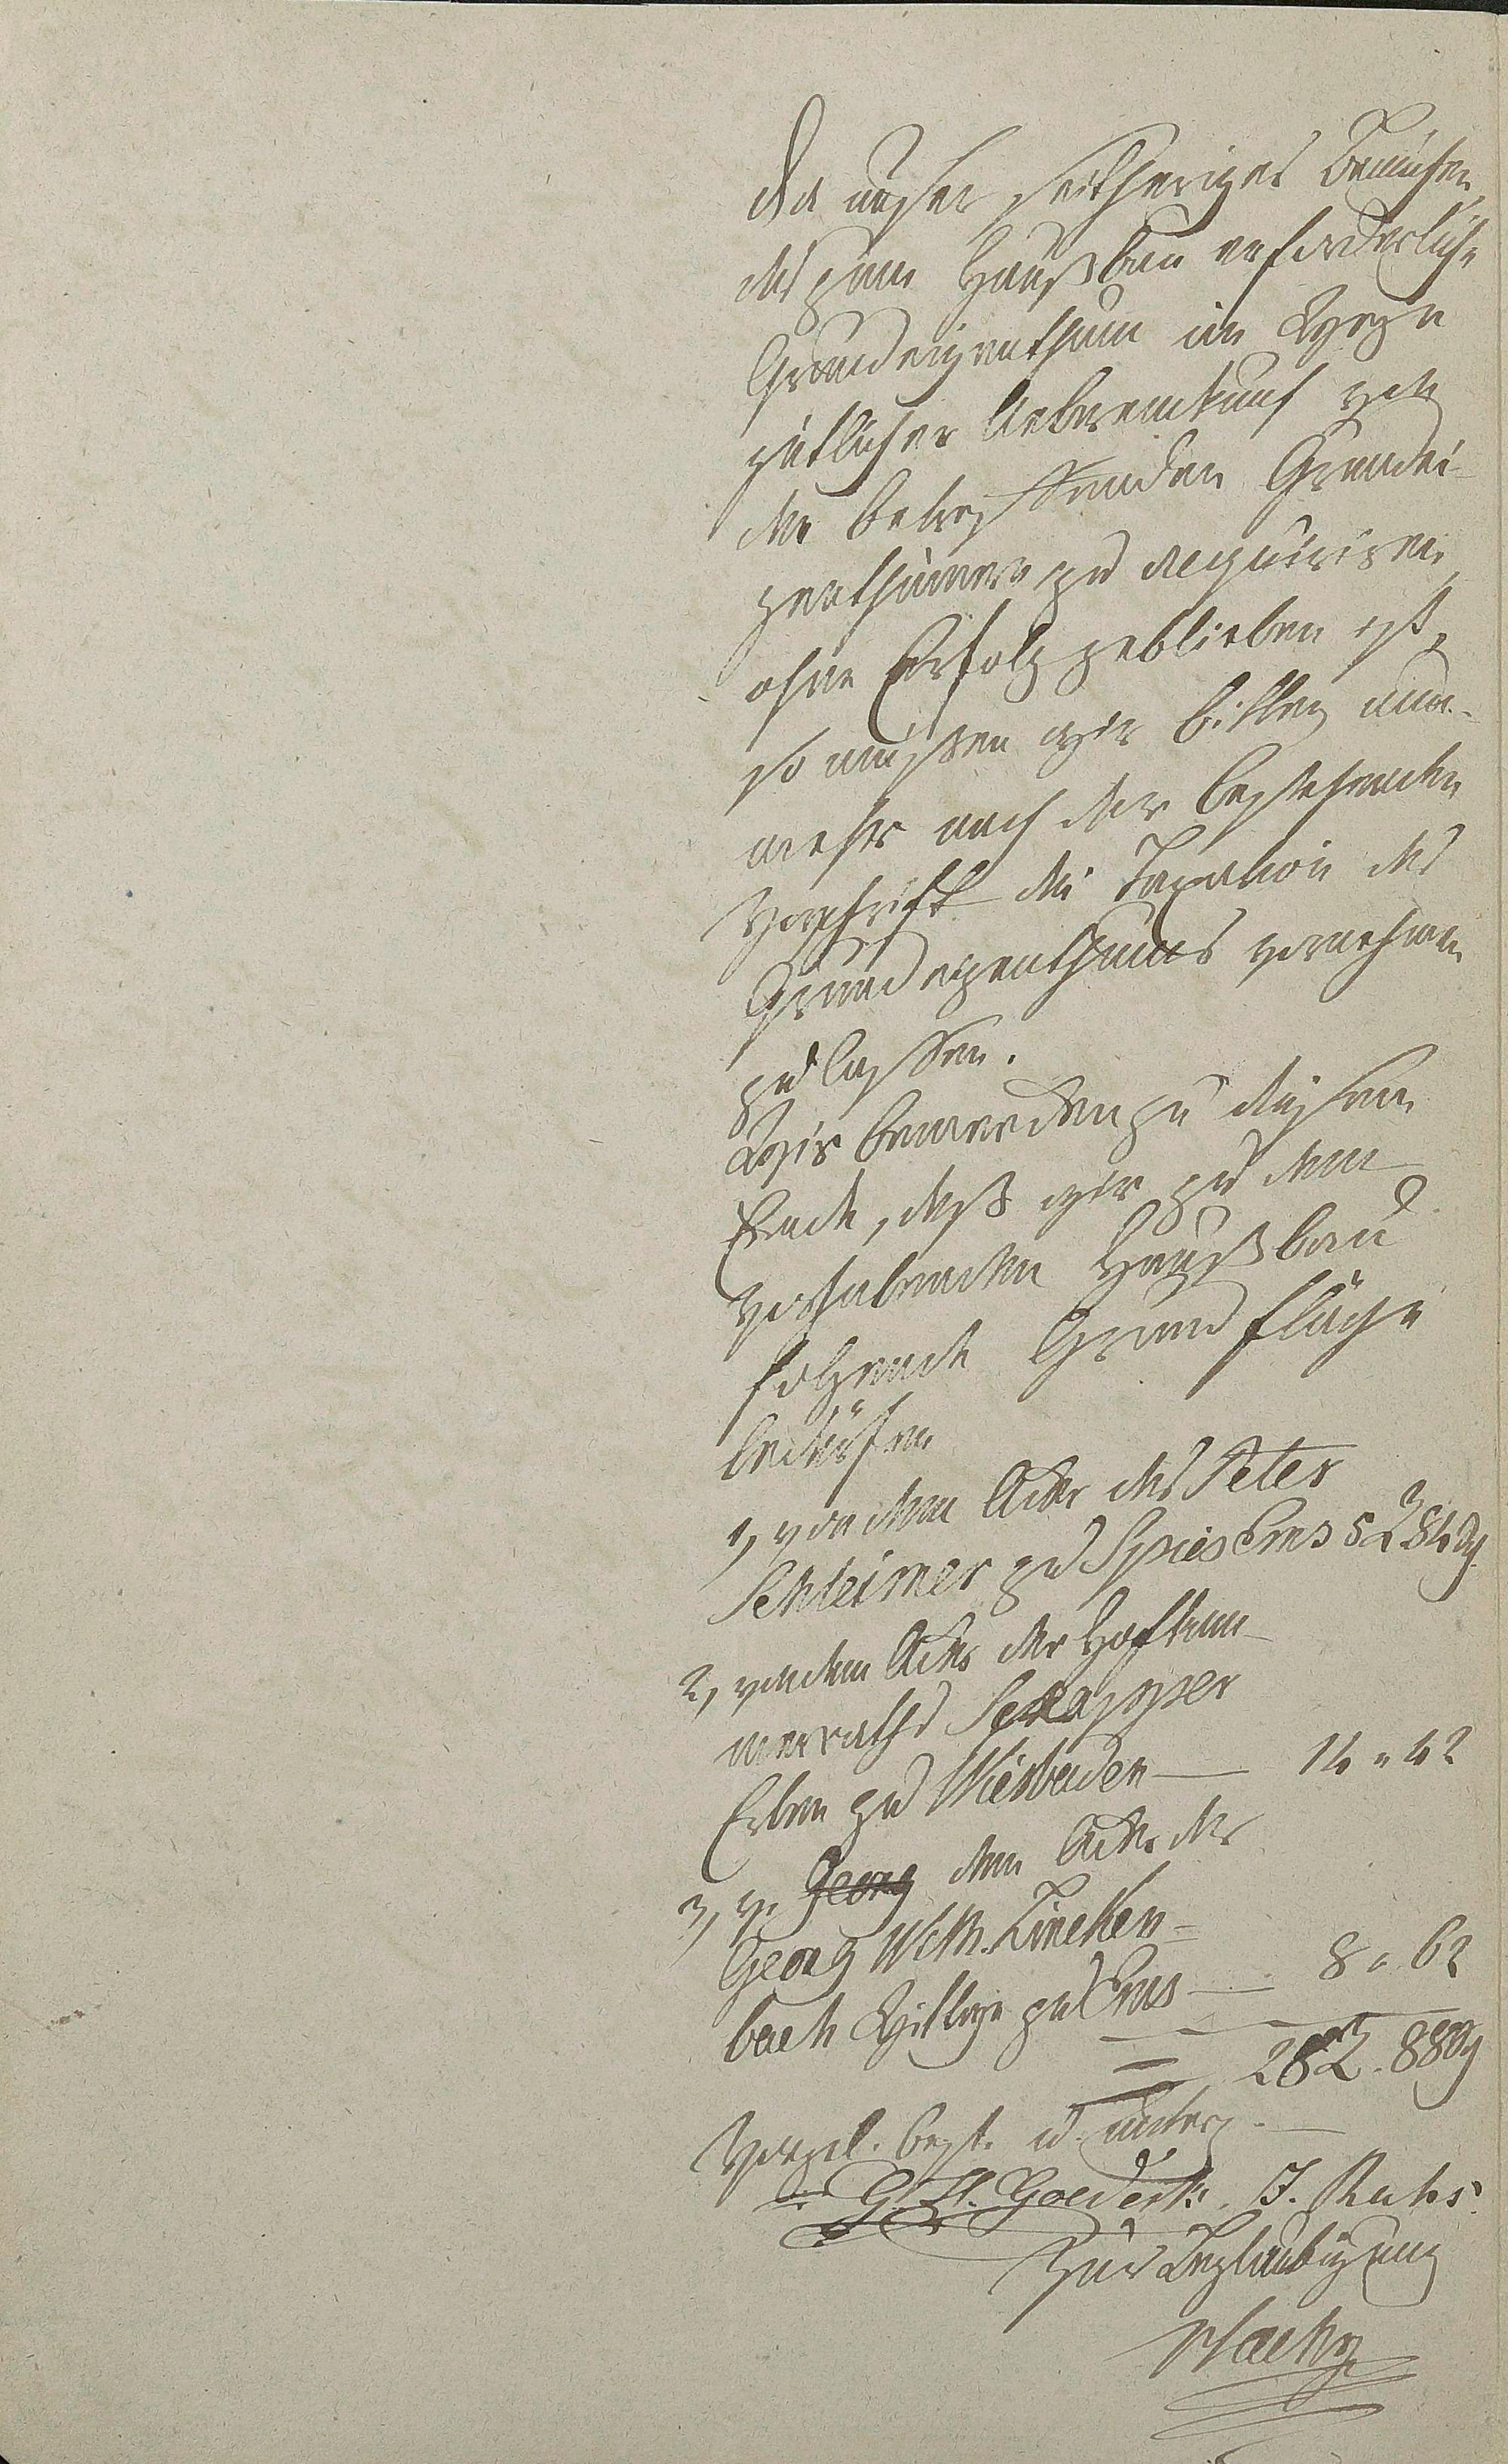 Da unser seitheriges Bemühen,
das zum Hausbau erforderliche
Grundeigenthum im Wege
gütlicher Uebereinkunft von
den betreffenden Grundei-
genthümern zu acquiriren,
ohne Erfolg geblieben ist,
so müssen wir bitten nun-
mehr nach der bestehenden
Vorschrift die Taxation des
Grundeigenthums vornehmen
zu lassen.
Wir bemerken zu diesem
Ende, daß wir zu dem
vorhabenden Hausbau
folgende Grundfläche
bedürfen
1, von dem Acker des Peter
Schleimer zu Spies Ems 5 R 84
2, von dem Acker der Hofkam-
merraths Schapper
Erben zu Wiesbaden — 14 " 42
3, v. Georg dem Acker der
Georg Wilh. Lincken-
bach Wittwe zu Ems — 8 " 62
= 28 R. 88
Vorgel. best. u. unterz.
G. H. Goedecke. J. Ruhs.
Zur Beglaubigung